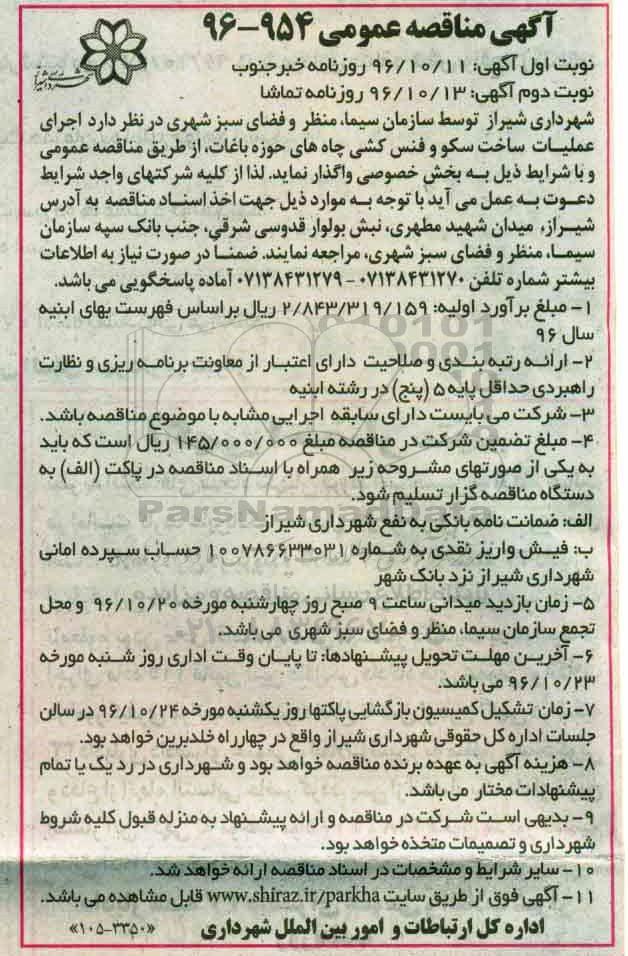 آگهی مناقصه عمومی ۹۵۴-۹۶
شهرداری شیراز
نوبت اول آگهی: ۹۶/۱۰/۱۱ روزنامه خبرجنوب
نوبت دوم آگهی: ۹۶/۱۰/۱۳ روزنامه تماشا
شهرداری شیراز توسط سازمان سیما، منظر و فضای سبز شهری در نظر دارد اجرای
عملیات ساخت سکو و فنس کشی چاه های حوزه باغات، از طریق مناقصه عمومی
و با شرایط ذیل به بخش خصوصی واگذار نماید. لذا از کلیه شرکتهای واجد شرایط
دعوت به عمل می آید با توجه به موارد ذیل جهت اخذ اسناد مناقصه به آدرس
شیراز، میدان شهید مطهری، نبش بولوار قدوسی شرقی، جنب بانک سپه سازمان
سیما، منظر و فضای سبز شهری، مراجعه نمایند. ضمنا در صورت نیاز به اطلاعات
بیشتر شماره تلفن ۰۷۱۳۸۴۳۱۲۷۰ - ۰۷۱۳۸۴۳۱۲۷۹ آماده پاسخگویی می باشد.
۱- مبلغ برآورد اولیه: ۲/۸۴۳/۳۱۹/۱۵۹ ریال براساس فهرست بهای ابنیه
سال ۹۶
۲- ارائه رتبه بندی و صلاحیت دارای اعتبار از معاونت برنامه ریزی و نظارت
راهبردی حداقل پایه ۵ (پنج) در رشته ابنیه
۳- شرکت می بایست دارای سابقه اجرایی مشابه با موضوع مناقصه باشد.
۴- مبلغ تضمین شرکت در مناقصه مبلغ ۱۴۵/۰۰۰/۰۰۰ ریال است که باید
به یکی از صورتهای مشروحه زیر همراه با اسناد مناقصه در پاکت (الف) به
دستگاه مناقصه گزار تسلیم شود.
ParsNamadData
الف: ضمانت نامه بانکی به نفع شهرداری شیراز
ب: فیش واریز نقدی به شماره ۱۰۰۷۸۶۶۳۳۰۳۱ حساب سپرده امانی
شهرداری شیراز نزد بانک شهر
۵- زمان بازدید میدانی ساعت ۹ صبح روز چهارشنبه مورخه ۹۶/۱۰/۲۰ و محل
تجمع سازمان سیما، منظر و فضای سبز شهری می باشد.
۶- آخرین مهلت تحویل پیشنهادها: تا پایان وقت اداری روز شنبه مورخه
۹۶/۱۰/۲۳ می باشد.
۷- زمان تشکیل کمیسیون بازگشایی پاکتها روز یکشنبه مورخه ۹۶/۱۰/۲۴ در سالن
جلسات اداره کل حقوقی شهرداری شیراز واقع در چهارراه خلدبرین خواهد بود.
۸- هزینه آگهی به عهده برنده مناقصه خواهد بود و شهرداری در رد یک یا تمام
پیشنهادات مختار می باشد.
۹- بدیهی است شرکت در مناقصه و ارائه پیشنهاد به منزله قبول کلیه شروط
شهرداری و تصمیمات متخذه خواهد بود.
۱۰- سایر شرایط و مشخصات در اسناد مناقصه ارائه خواهد شد.
۱۱- آگهی فوق از طریق سایت www.shiraz.ir/parkha قابل مشاهده می باشد.
اداره کل ارتباطات و امور بین الملل شهرداری «۳۳۵۰-۱۰۵»